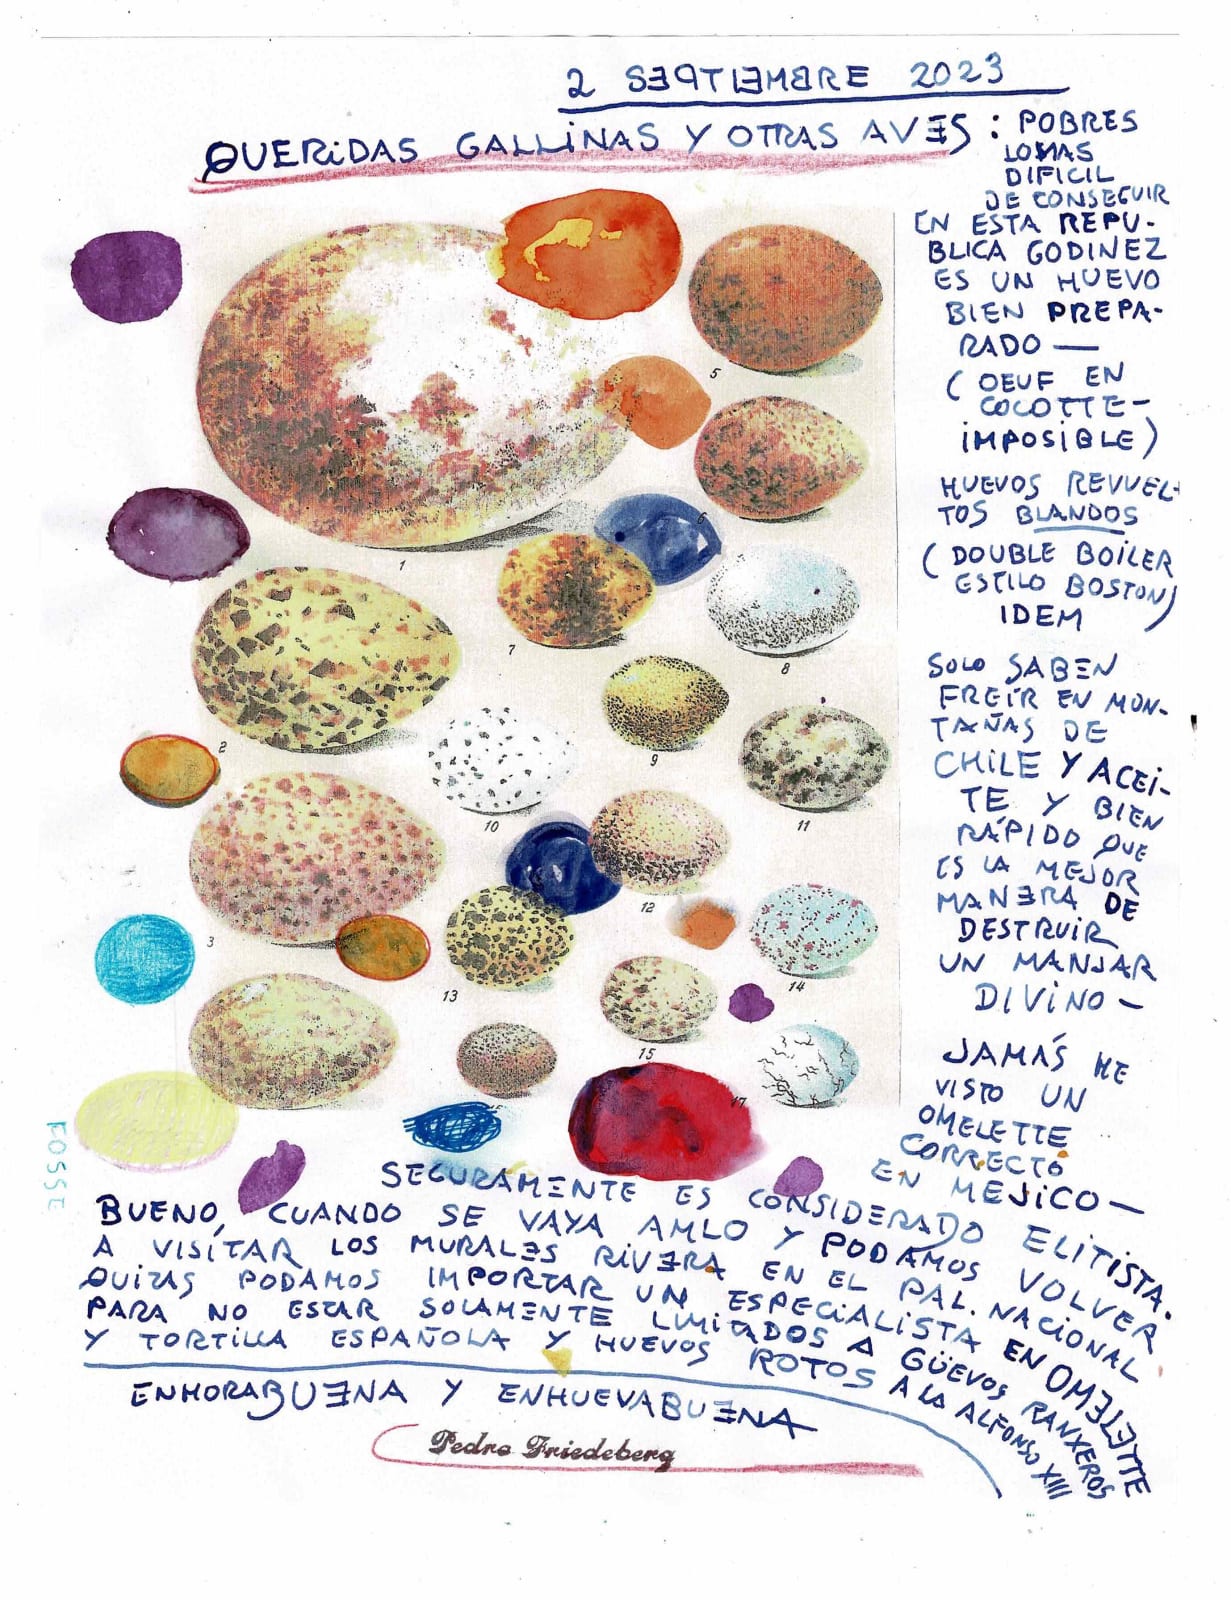 2 SEPTIEMBRE 2023
QUERIDAS GALLINAS Y OTRAS AVES : POBRES
LO MAS
DIFICIL
DE CONSEGUIR
EN ESTA REPU-
BLICA GODINEZ
ES UN HUEVO
BIEN PREPA-
RADO —
( OEUF EN
COCOTTE -
IMPOSIBLE )
HUEVOS REVUEL-
TOS BLANDOS
( DOUBLE BOILER
ESTILO BOSTON )
IDEM
SOLO SABEN
FREIR EN MON-
TAÑAS DE
CHILE Y ACEI-
TE Y BIEN
RÁPIDO QUE
ES LA MEJOR
MANERA DE
DESTRUIR
UN MANJAR
DIVINO —
JAMÁS HE
VISTO UN
OMELETTE
CORRECTO
EN MEJICO —
SEGURAMENTE ES CONSIDERADO ELITISTA.
BUENO, CUANDO SE VAYA AMLO Y PODAMOS VOLVER
A VISITAR LOS MURALES RIVERA EN EL PAL. NACIONAL
QUIZAS PODAMOS IMPORTAR UN ESPECIALISTA EN OMELETTE
PARA NO ESTAR SOLAMENTE LIMITADOS A GÜEVOS RANXEROS
Y TORTILLA ESPAÑOLA Y HUEVOS ROTOS A LA ALFONSO XIII
ENHORABUENA Y ENHUEVABUENA
Pedro Friedeberg
FOSSE
1
5
6
7
8
2
9
10
11
3
12
13
14
15
17